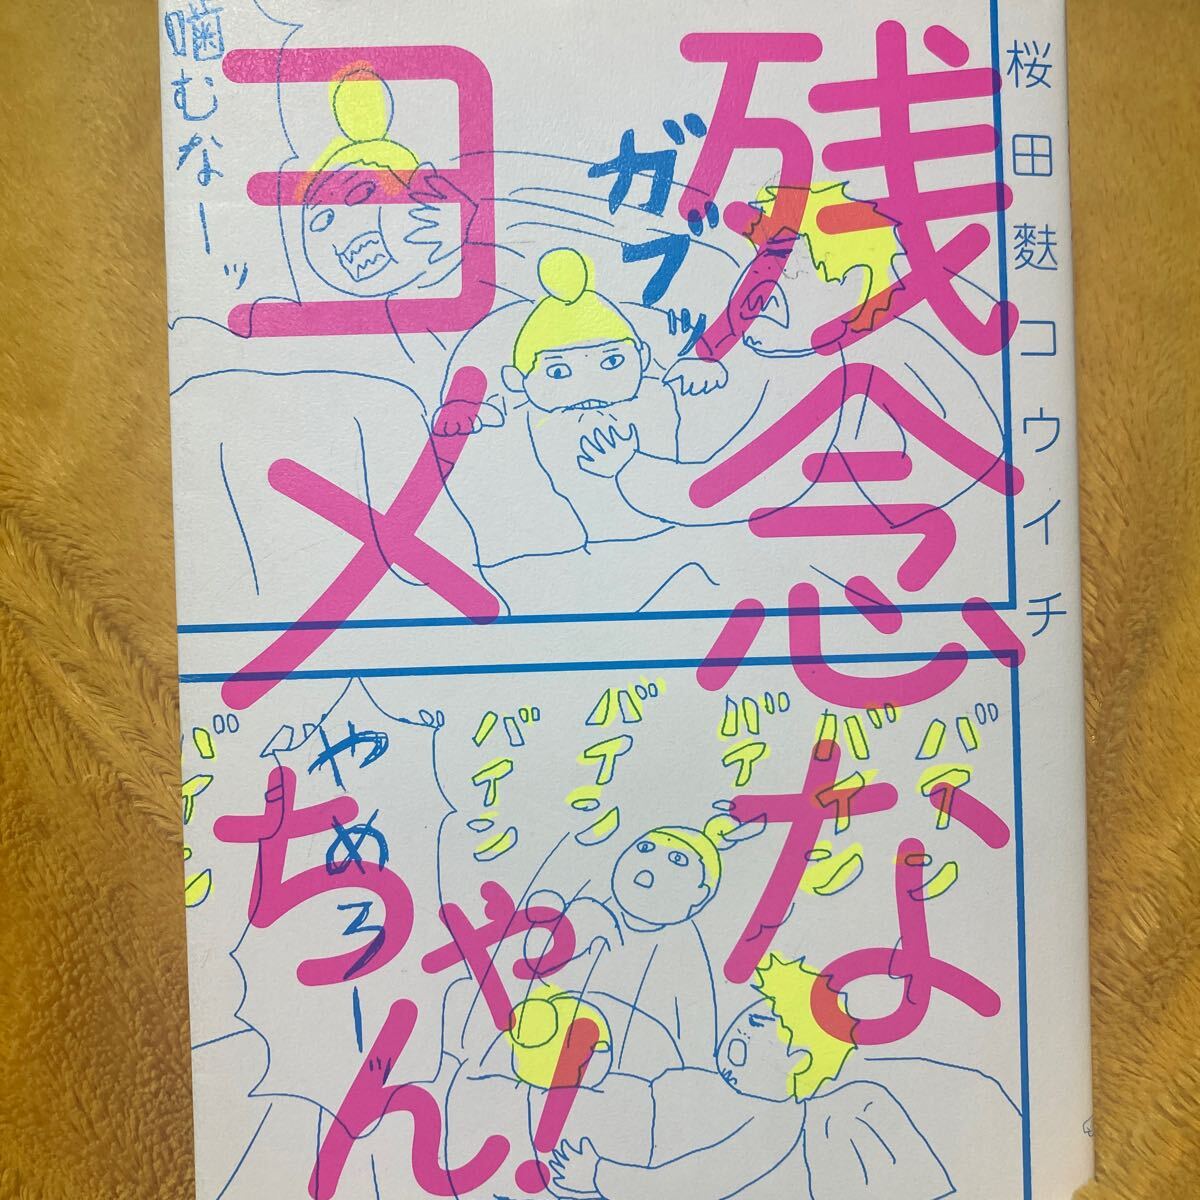 残念な
ヨメ
ちゃん!
桜田麩コウイチ
噛むなーッ
ガブッ
バイン
バイン
バイン
バイン
バイン
やめろーッ
バイン